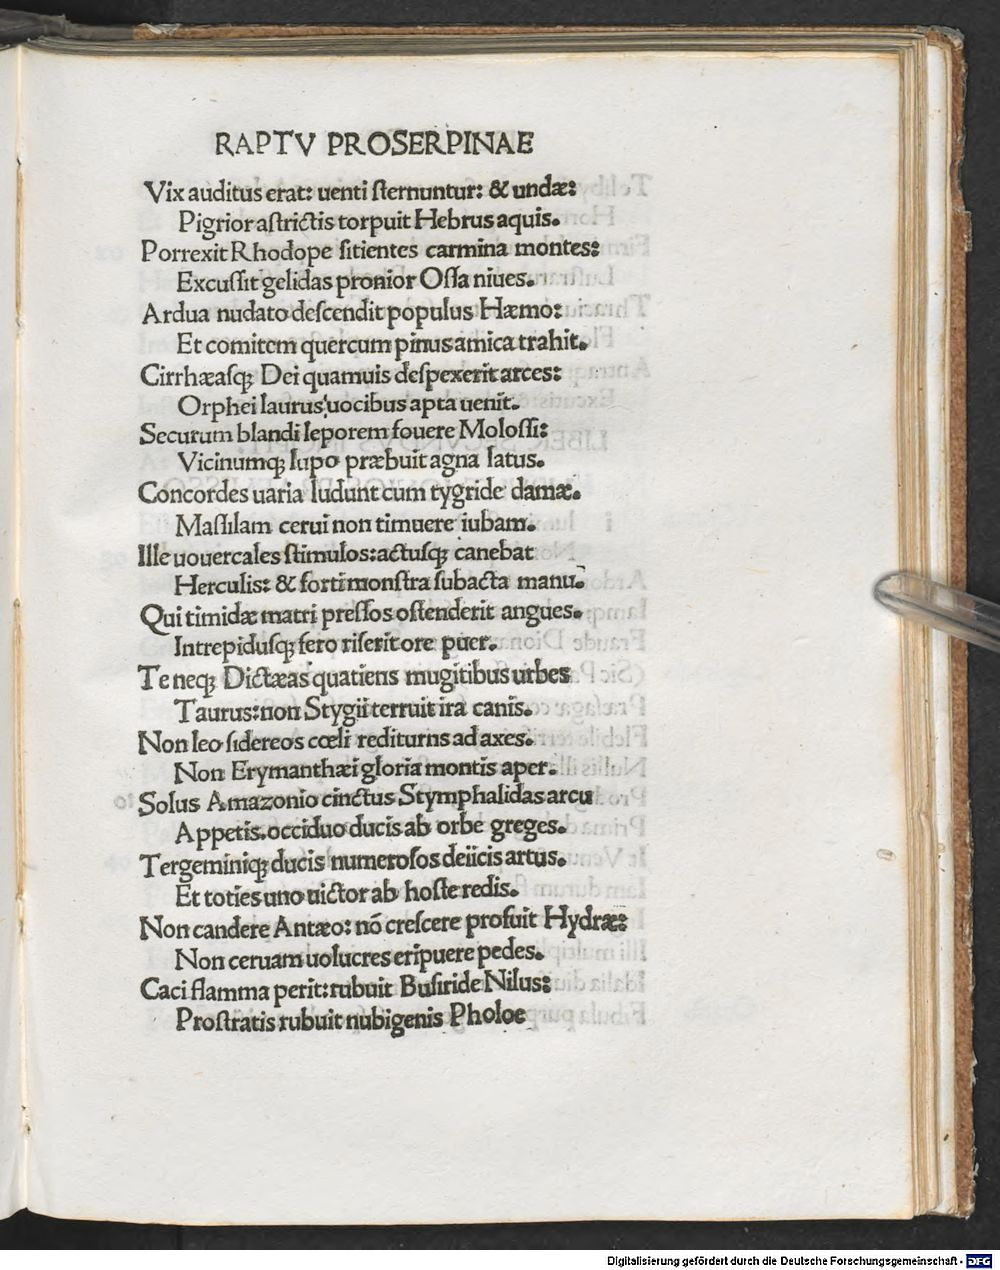 RAPTV PROSERPINAE
Vix auditus erat: uenti ſternuntur: & undæ:
Pigrior aſtrictis torpuit Hebrus aquis.
Porrexit Rhodope ſitientes carmina montes:
Excuſſit gelidas pronior Oſſa niues.
Ardua nudato deſcendit populus Hæmo:
Et comitem quercum pinus amica trahit.
Cirrhæaſqꝫ Dei quamuis deſpexerit arces:
Orphei laurus uocibus apta uenit.
Securum blandi leporem fouere Moloſſi:
Vicinumqꝫ lupo præbuit agna latus.
Concordes uaria ludunt cum tygride damæ.
Maſſilam cerui non timuere iubam.
Ille uouercales ſtimulos: actuſqꝫ canebat
Herculis: & forti monſtra ſubacta manu.
Qui timidæ matri preſſos oſtenderit angues.
Intrepiduſqꝫ fero riſerit ore puer.
Te neqꝫ Dictæas quatiens mugitibus urbes
Taurus: non Stygii terruit ira canis.
Non leo ſidereos cœli rediturns ad axes.
Non Erymanthæi gloria montis aper.
Solus Amazonio cinctus Stymphalidas arcu
Appetis. occiduo ducis ab orbe greges.
Tergeminiqꝫ ducis numeroſos deiicis artus.
Et toties uno uictor ab hoſte redis.
Non candere Antæo: nō creſcere profuit Hydræ:
Non ceruam uolucres eripuere pedes.
Caci flamma perit: rubuit Buſiride Nilus:
Proſtratis rubuit nubigenis Pholoe
Digitalisierung gefördert durch die Deutsche Forschungsgemeinschaft - DFG